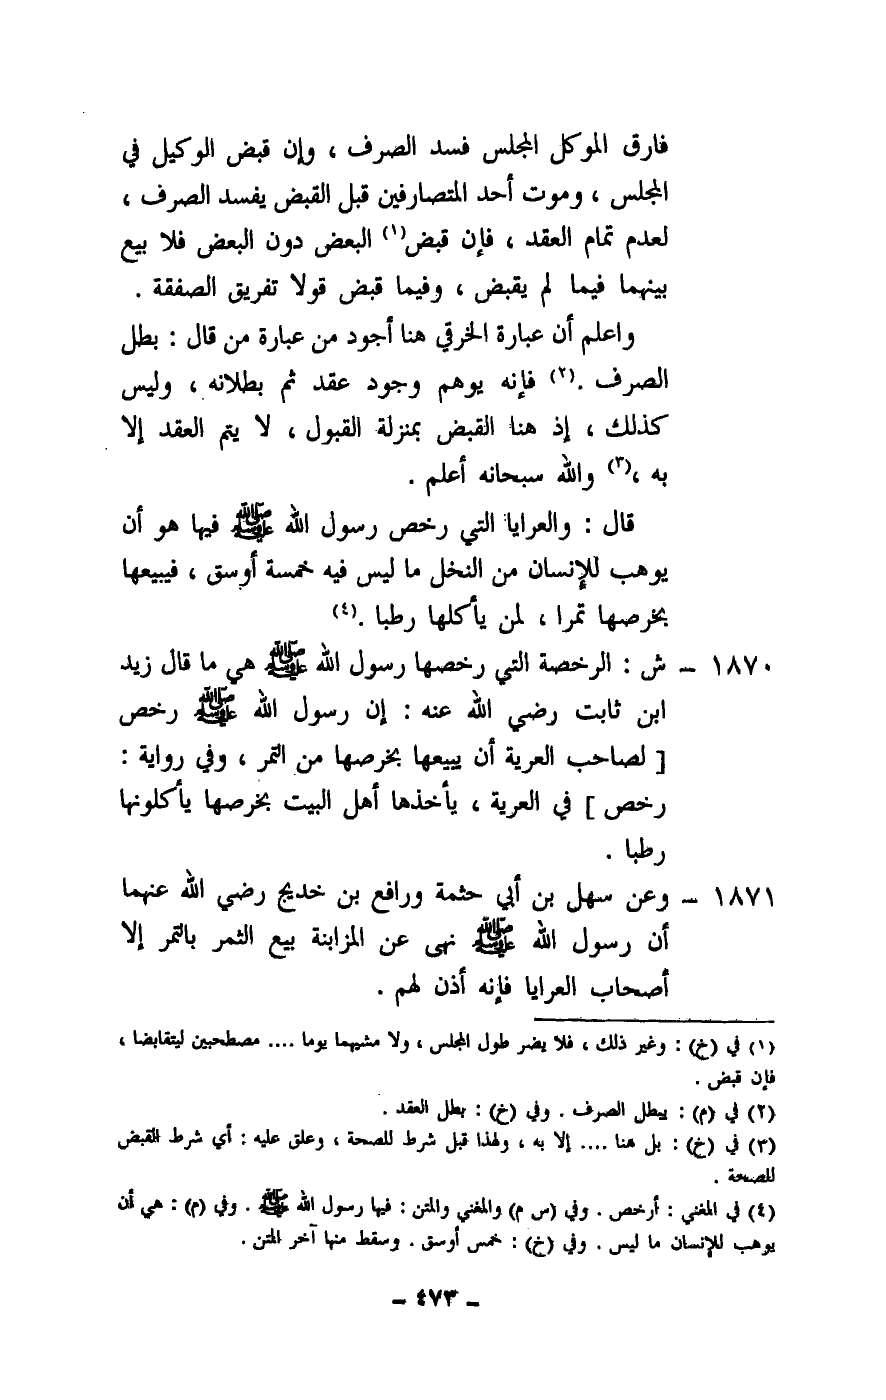 فارق الموكل المجلس فسد الصرف ، وإن قبض الوكيل في
المجلس ، وموت أحد المتصارفين قبل القبض يفسد الصرف ،
لعدم تمام العقد ، فإن قبض(١) البعض دون البعض فلا بيع
بينهما فيما لم يقبض ، وفيما قبض قولا تفريق الصفقة .
واعلم أن عبارة الخرقي هنا أجود من عبارة من قال : بطل
الصرف .(٢) فإنه يوهم وجود عقد ثم بطلانه ، وليس
كذلك ، إذ هنا القبض بمنزلة القبول ، لا يتم العقد إلا
به ،(٣) والله سبحانه أعلم .
قال : والعرايا التي رخص رسول الله ﷺ فيها هو أن
يوهب للإنسان من النخل ما ليس فيه خمسة أوسق ، فيبيعها
بخرصها تمرا ، لمن يأكلها رطبا .(٤)
١٨٧٠ – ش : الرخصة التي رخصها رسول الله ﷺ هي ما قال زيد
ابن ثابت رضي الله عنه : إن رسول الله ﷺ رخص
[ لصاحب العرية أن يبيعها بخرصها من التمر ، وفي رواية :
رخص ] في العرية ، يأخذها أهل البيت بخرصها يأكلونها
رطبا .
١٨٧١ – وعن سهل بن أبي حثمة ورافع بن خديج رضي الله عنهما
أن رسول الله ﷺ نهى عن المزابنة بيع الثمر بالتمر إلا
أصحاب العرايا فإنه أذن لهم .
(١) في (خ) : وغير ذلك ، فلا يضر طول المجلس ، ولا مشيهما يوما .... مصطحبين ليتقابضا ،
فإن قبض .
(٢) في (م) : يبطل الصرف . وفي (خ) : بطل العقد .
(٣) في (خ) : بل هنا .... إلا به ، ولهذا قبل شرط للصحة ، وعلق عليه : أي شرط القبض
للصحة .
(٤) في المغني : أرخص . وفي (س م) والمغني والمتن : فيها رسول الله ﷺ . وفي (م) : هي أن
يوهب للإنسان ما ليس . وفي (خ) : خمس أوسق . وسقط منها آخر المتن .
– ٤٧٣ –